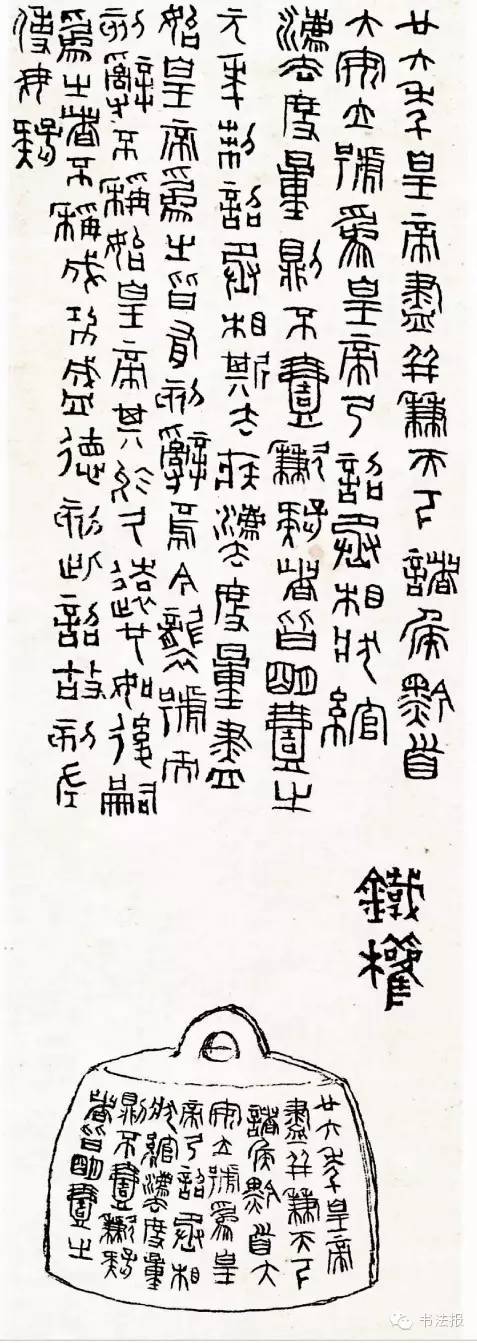 廿六年皇帝盡并兼天下諸侯黔首
大安立號爲皇帝乃詔丞相狀綰
灋度量則不壹歉疑者皆明壹之
元年制詔丞相斯去疾灋度量盡
始皇帝爲之皆有刻辭焉今襲號而
刻辭不稱始皇帝其於久遠也如後嗣
爲之者不稱成功盛德刻此詔故刻左
使毋疑
鐵權
廿六年皇帝
盡并兼天下
諸侯黔首大
安立號爲皇
帝乃詔丞相
狀綰灋度量
則不壹歉疑
者皆明壹之
书法报